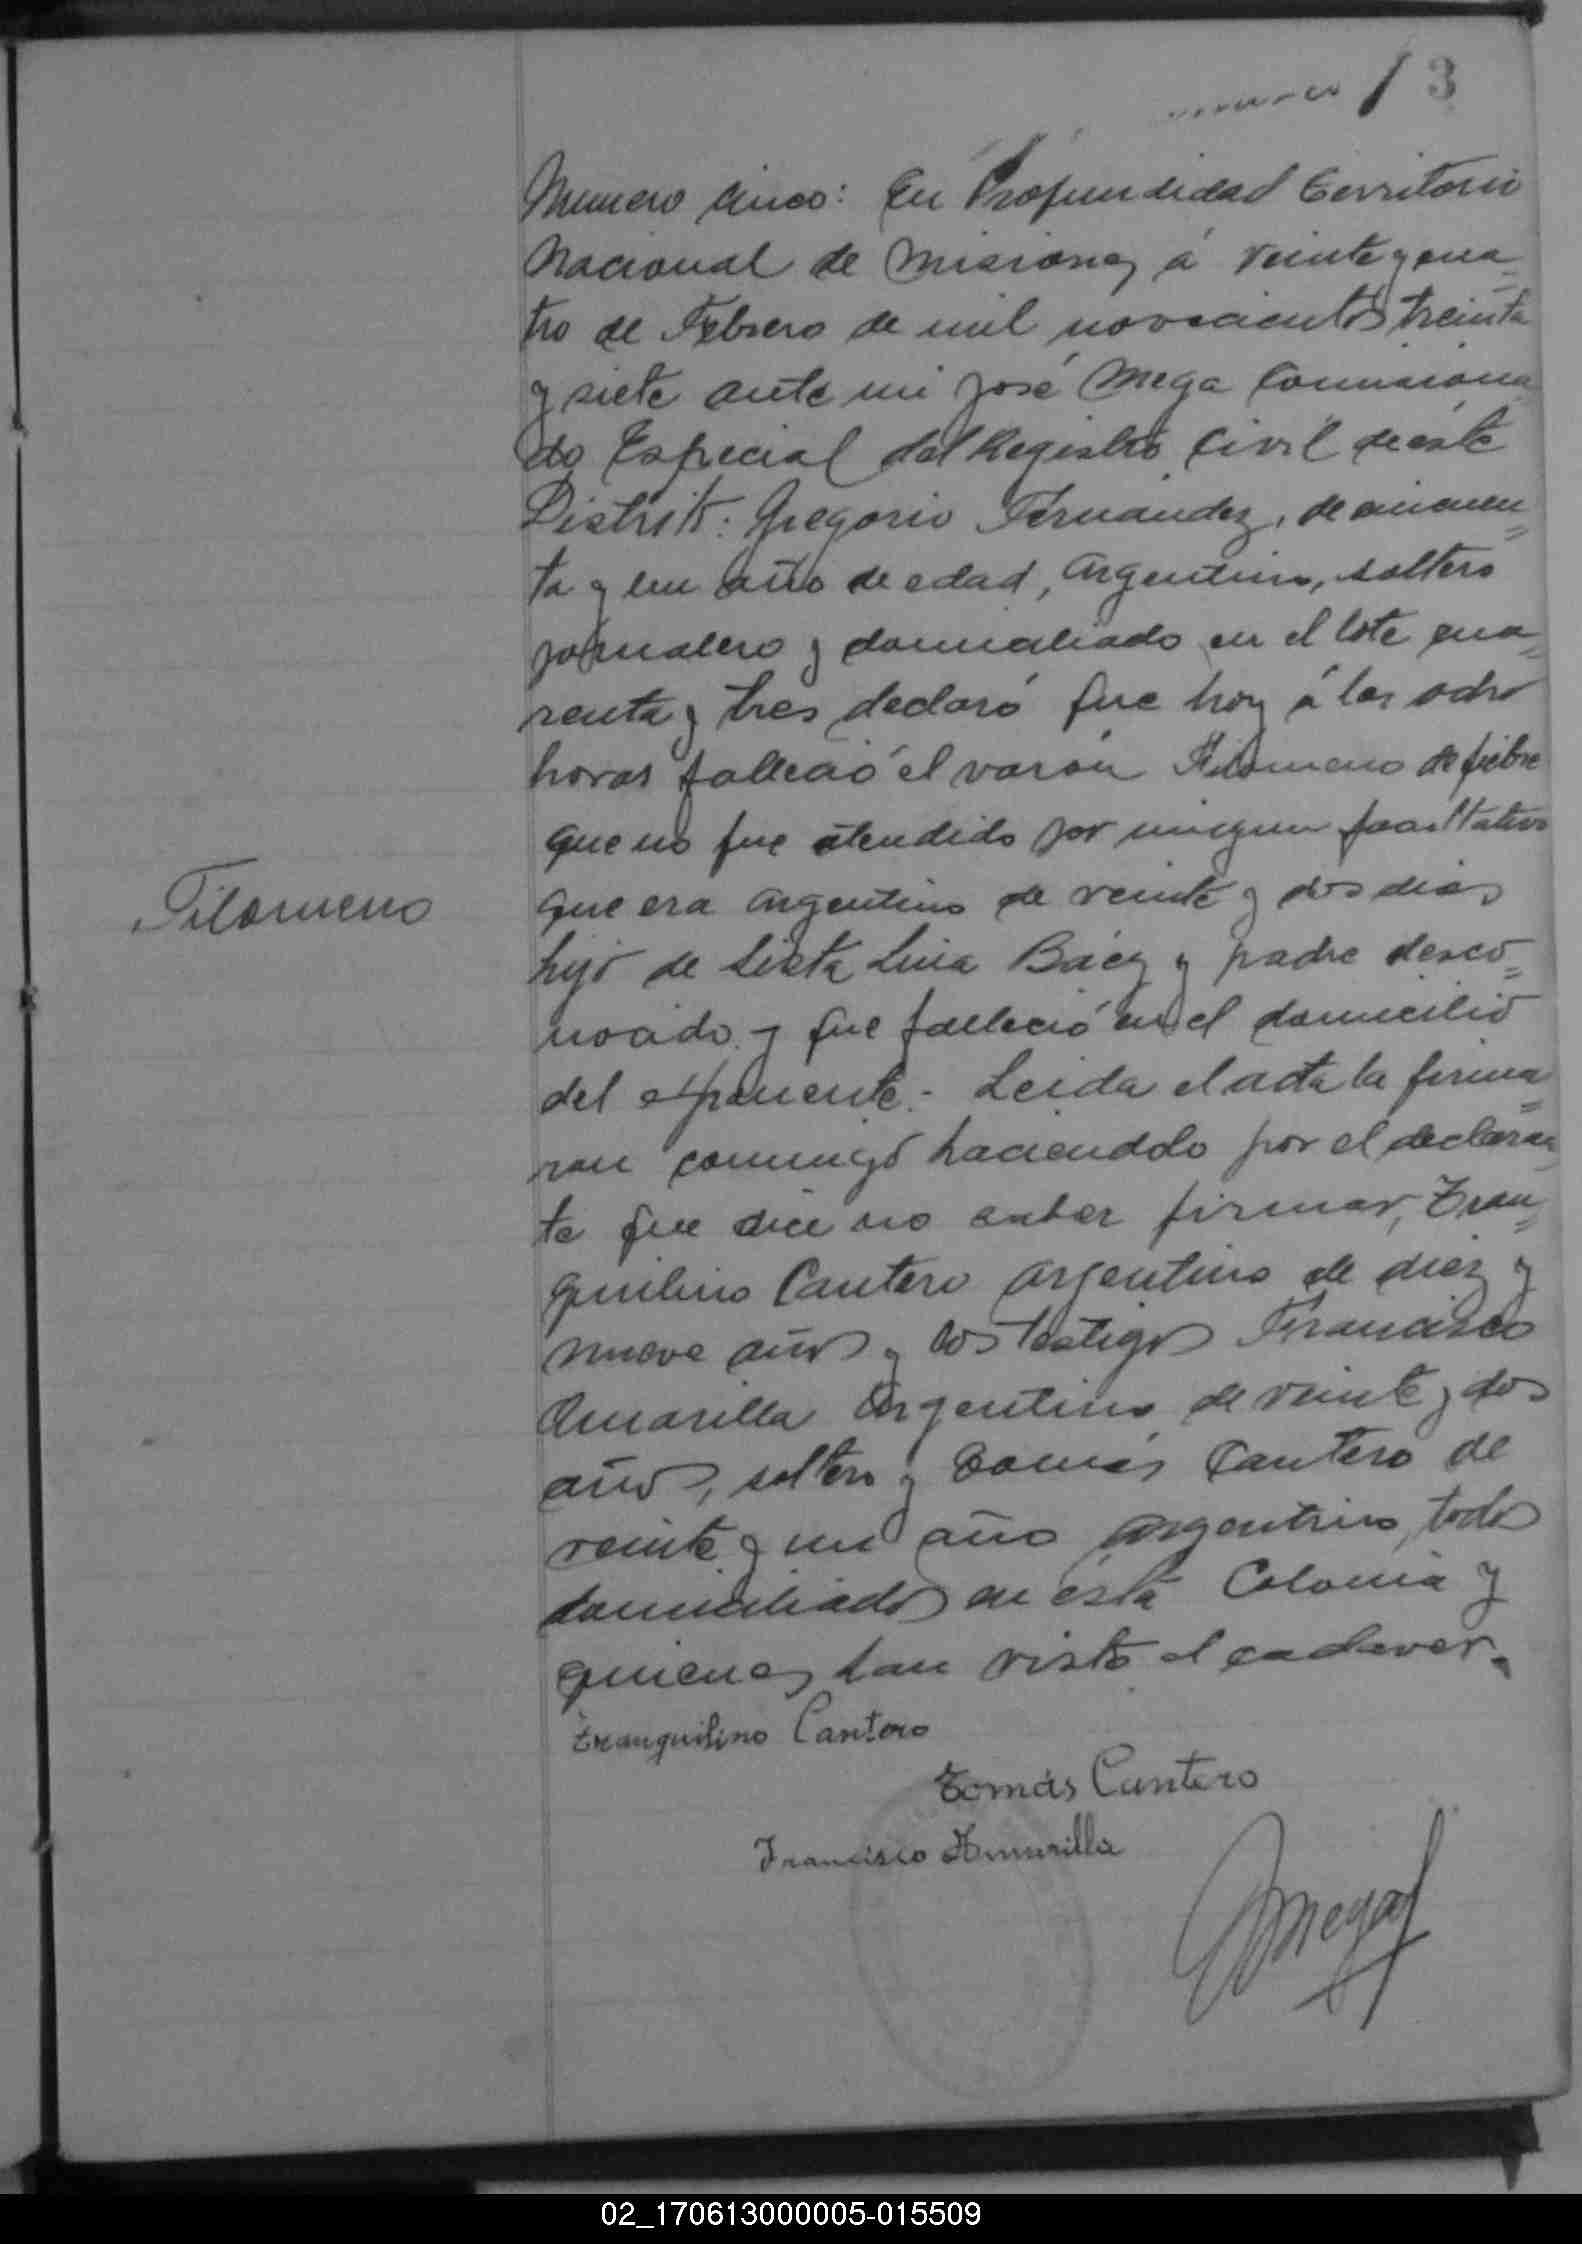 3
Numero cinco: En Profundidad Territorio
Nacional de Misiones, á veinte y cua=
tro de Febrero de mil novecientos treinta
y siete ante mi José Mega Comisiona
do Especial del Registro Civil de éste
Distrito: Gregorio Fernández, de cincuen=
ta y un año de edad, Argentino, soltero
jornalero y domiciliado en el lote cua=
renta y tres declaró que hoy á las ocho
horas falleció el varón Filomeno de fiebre
que no fue atendido por ningun facultativo
que era Argentino de veinte y dos dias
hijo de Sixta Lina Báez y padre desco=
nocido y que falleció en el domicilio
del exponente.- Leida el acta la firma=
ron conmigo haciendolo por el declaran
te que dice no saber firmar, Tran=
quilino Cantero Argentino de diez y
nueve años y los testigos Francisco
Amarilla Argentino de veinte y dos
años, soltero y Tomás Cantero de
veinte y un año Argentino, todos
domiciliados en ésta Colonia y
quienes han visto el cadaver.
Filomeno
Tranquilino Cantero
Tomás Cantero
Francisco Amarilla
JMega
02_170613000005-015509